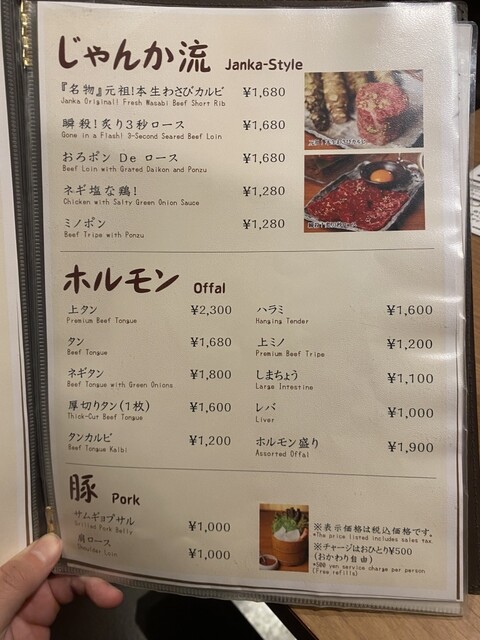 じゃんか流 Janka-Style
『名物』元祖!本生わさびカルビ ¥1,680
Janka Original! Fresh Wasabi Beef Short Rib
瞬殺!炙り3秒ロース ¥1,680
Gone in a Flash! 3-Second Seared Beef Loin
おろポン De ロース ¥1,680
Beef Loin with Grated Daikon and Ponzu
ネギ塩な鶏! ¥1,280
Chicken with Salty Green Onion Sauce
ミノポン ¥1,280
Beef Tripe with Ponzu
ホルモン Offal
上タン ¥2,300
Premium Beef Tongue
タン ¥1,680
Beef Tongue
ネギタン ¥1,800
Beef Tongue with Green Onions
厚切りタン(1枚) ¥1,600
Thick-Cut Beef Tongue
タンカルビ ¥1,200
Beef Tongue Kalbi
ハラミ ¥1,600
Hanging Tender
上ミノ ¥1,200
Premium Beef Tripe
しまちょう ¥1,100
Large Intestine
レバ ¥1,000
Liver
ホルモン盛り ¥1,900
Assorted Offal
豚 Pork
サムギョプサル ¥1,000
Grilled Pork Belly
肩ロース ¥1,000
Shoulder Loin
※表示価格は税込価格です。
*The price listed includes sales tax.
※チャージはおひとり¥500
(おかわり自由)
*500 yen service charge per person
(Free refills)